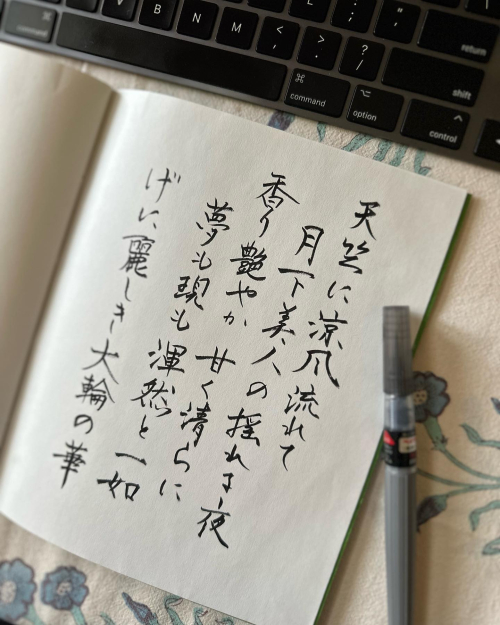 V B N M < , > . ? / : ; " '
return
shift
command ⌘ command ⌥ option ^ control
天竺に涼風流れて
月下美人の揺れ 夜
香り艶やか 甘く清らに
夢も現も 渾然と一如
げに麗しき大輪の華